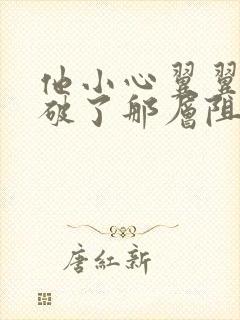 他小心翼翼
破了那层阻
唐紅新